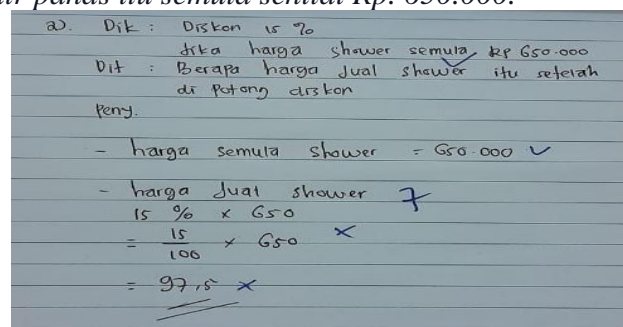 air panas itu semula senilai Rp. 650.000.
a). Dik : Diskon 15 %
Jika harga shower semula Rp 650.000
Dit : Berapa harga Jual shower itu setelah
di potong diskon
Peny.
- harga semula shower = 650.000 ✓
- harga Jual shower 7
15 % x 650
= 15/100 x 650 ×
= 97,5 ×